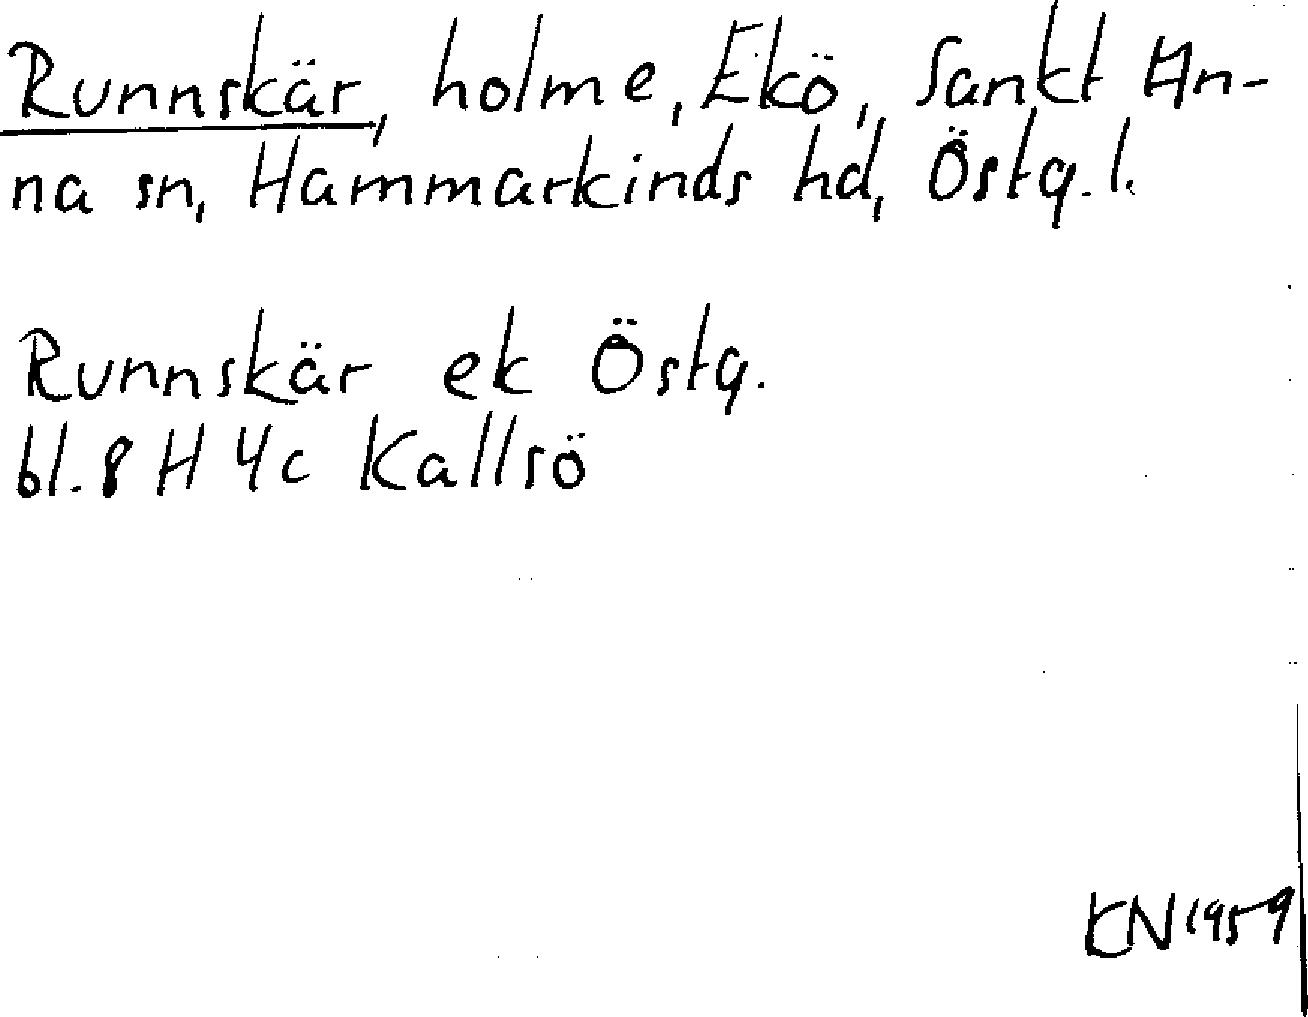 Runnskär, holme, Ekö, Sankt An-
na sn, Hammarkinds hd, Östg. l.
Runnskär ek Östg.
bl. 8 H 4c Kallsö
KN 1959